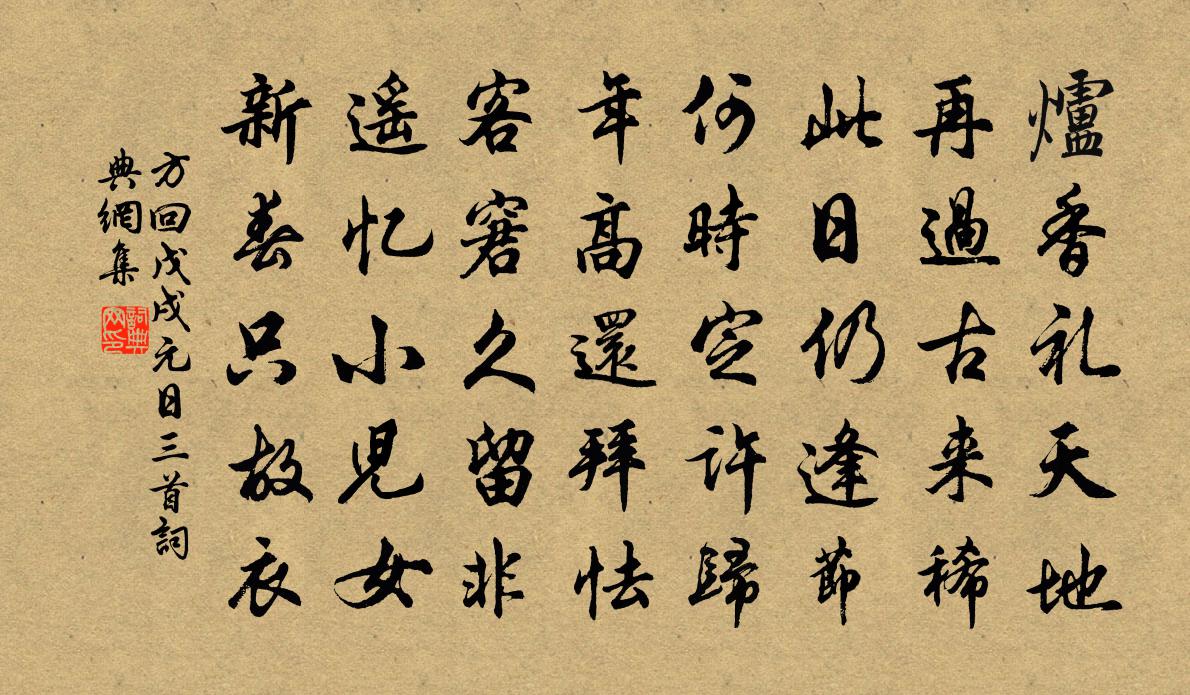 爐香礼天地
再過古来稀
此日仍逢節
何時定許歸
年高還拜怯
客窘久留非
遥忆小児女
新春只故衣
方回戊戌元日三首詞
典網集
詞典
网印